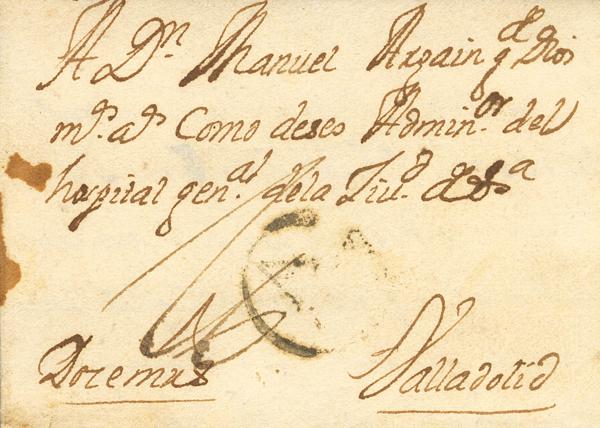 A Dn. Manuel Argain q de Dios
ms. as Como deseo Admin.or del
hospital gen.al dela Ziu.d de
Valladolid